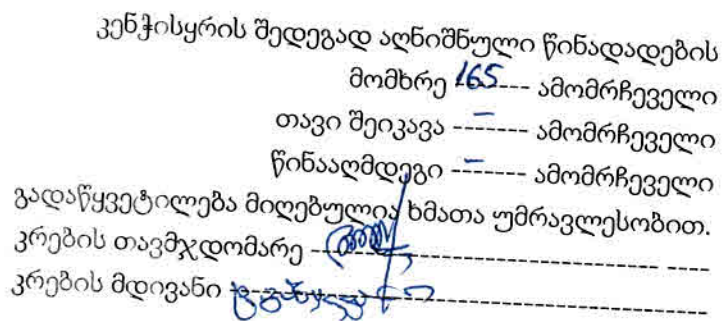 კენჭისყრის შედეგად აღნიშნული წინადადების
მომხრე 165 ------ ამომრჩეველი
თავი შეიკავა --–---- ამომრჩეველი
წინააღმდეგი --–---- ამომრჩეველი
გადაწყვეტილება მიღებულია ხმათა უმრავლესობით.
კრების თავმჯდომარე
კრების მდივანი